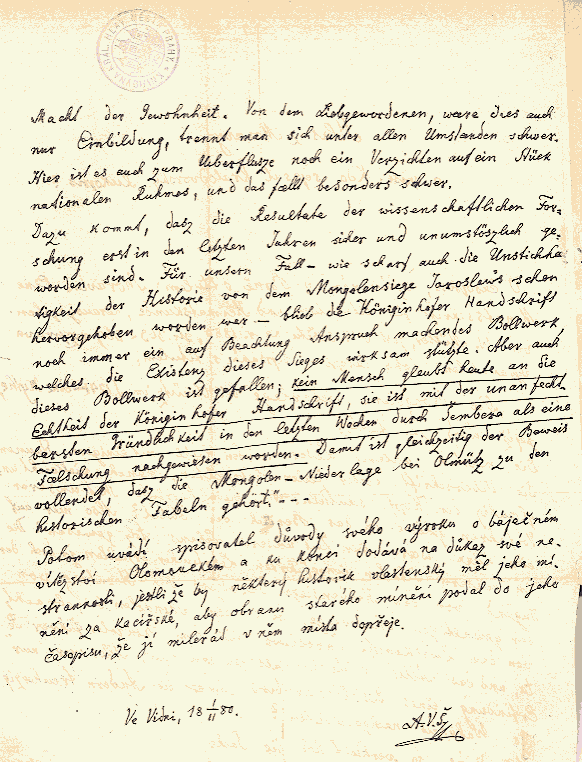 Macht der Gewohnheit. Von dem Liebgewordenen, waere dies auch
nur Einbildung, trennt man sich unter allen Umstaenden schwer.
Hier ist es auch zum Ueberflusze noch ein Verzichten auf ein Stück
nationalen Ruhmes, und das faellt besonders schwer.
Dazu kommt, dasz die Resultate der wissenschaftlichen For-
schung erst in den letzten Jahren sicher und unumstöszlich ge-
worden sind. Für unsern Fall – wie scharf auch die Unstichhal-
tigkeit der Historie von dem Mongolensiege Jaroslaws schon
hervorgehoben worden war – blieb die Königinhofer Handschrift
noch immer ein auf Beachtung Anspruch machendes Bollwerk,
welches die Existenz dieses Sieges wirksam stützte. Aber auch
dieses Bollwerk ist gefallen; kein Mensch glaubt heute an die
Echtheit der Königinhofer Handschrift, sie ist mit der unanfecht-
barsten Gründlichkeit in den letzten Wochen durch Šembera als eine
Faelschung nachgewiesen worden. Damit ist gleichzeitig der Beweis
vollendet, dasz die Mongolen-Niederlage bei Olmütz zu den
historischen Fabeln gehört." - - -
Potom uvádí spisovatel důvody svého výroku o báječném
vítězství Olomouckém a ku konci dodává na důkaz své ne-
strannosti, jestli že by některý historik vlastenský měl jeho mí-
nění za kacířské, aby obranu starého mínění podal do jeho
časopisu, že jí milerád v něm místa dopřeje.
Ve Vídni, 18 1/II 80.
A.V.Š.